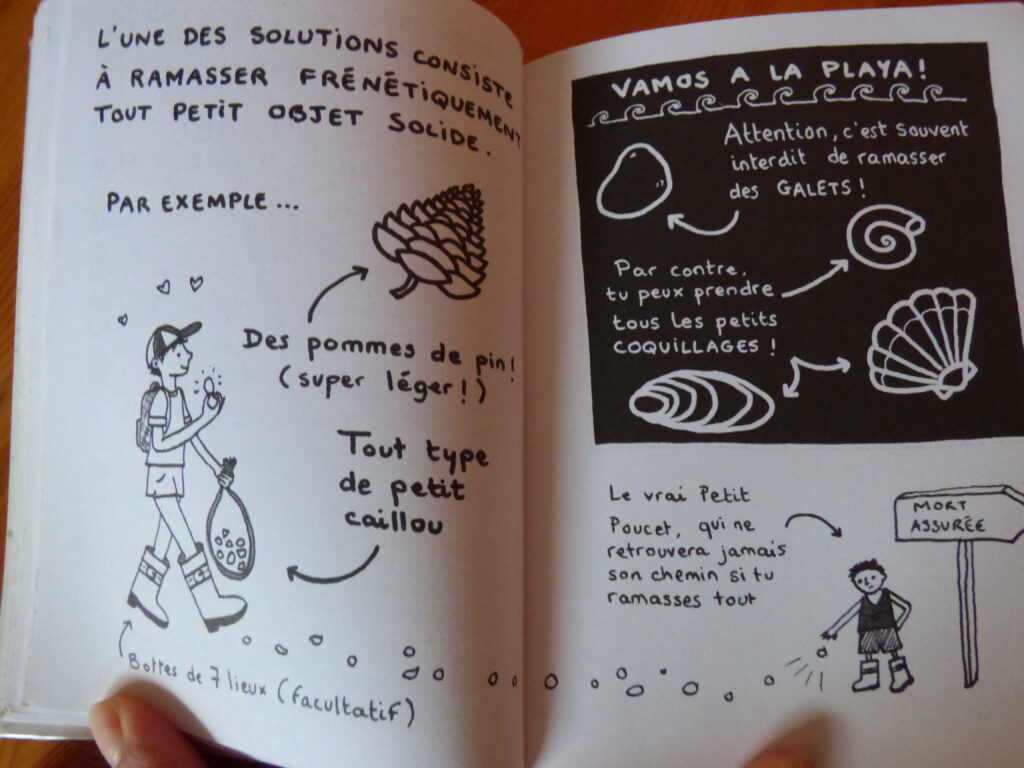 L'UNE DES SOLUTIONS CONSISTE
À RAMASSER FRÉNÉTIQUEMENT
TOUT PETIT OBJET SOLIDE.
PAR EXEMPLE...
Des pommes de pin!
(super léger!)
Tout type
de petit
caillou
Bottes de 7 lieux (facultatif)
VAMOS A LA PLAYA!
Attention, c'est souvent
interdit de ramasser
des GALETS!
Par contre,
tu peux prendre
tous les petits
COQUILLAGES!
Le vrai Petit
Poucet, qui ne
retrouvera jamais
son chemin si tu
ramasses tout
MORT
ASSURÉE